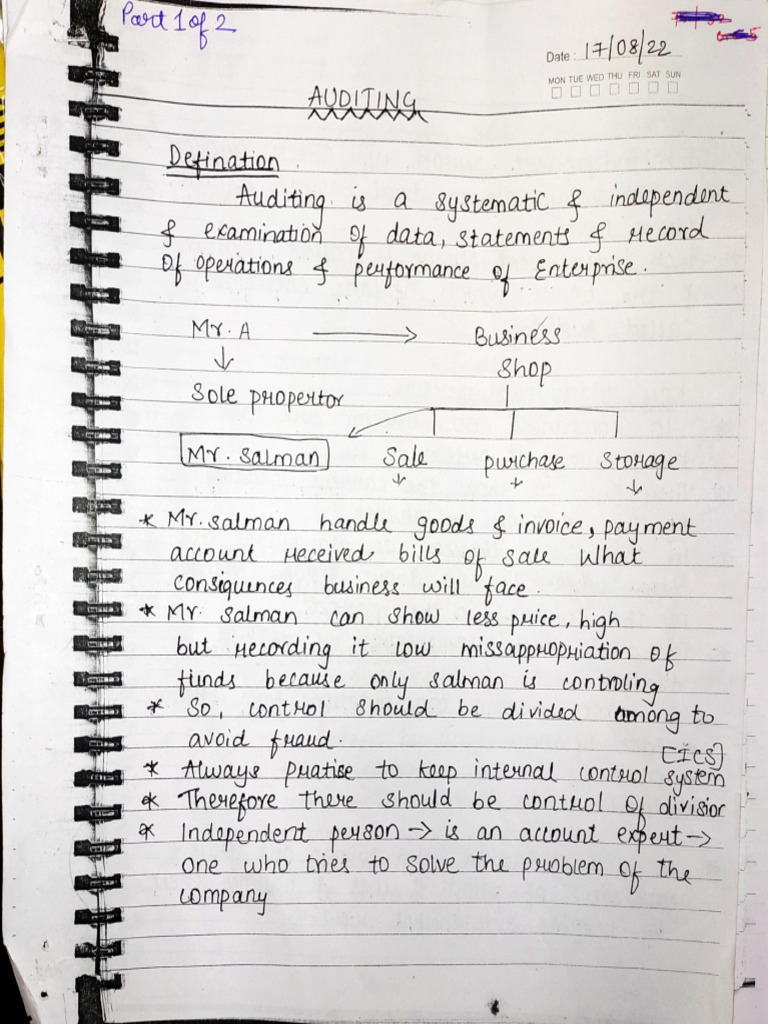 Part 1 of 2
Date: 17/08/22
MON TUE WED THU FRI SAT SUN
AUDITING
Defination.
Auditing is a systematic & independent
& examination of data, statements & record
of operations & performance of Enterprise.
Mr. A → Business
↓ Shop
Sole propertor
Mr. Salman Sale purchase Storage
↓ ↓ ↓
* Mr. Salman handle goods & invoice, payment
account received bills of sale What
consiquences business will face.
* Mr. Salman can show less price, high
but recording it low missappropriation of
funds because only Salman is controling
* So, control should be divided among to
avoid fraud.
[ICS]
* Always pratise to keep internal control system
* Therefore there should be control of division
* Independent person → is an account expert →
one who tries to solve the problem of the
company